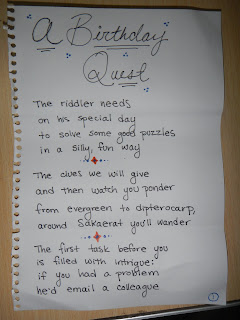 A Birthday
Quest
The riddler needs
on his special day
to solve some good puzzles
in a silly, fun way
The clues we will give
and then watch you ponder
from evergreen to dipterocarp,
around Sakaerat you'll wander
The first task before you
is filled with intrigue:
if you had a problem
he'd email a colleague
1